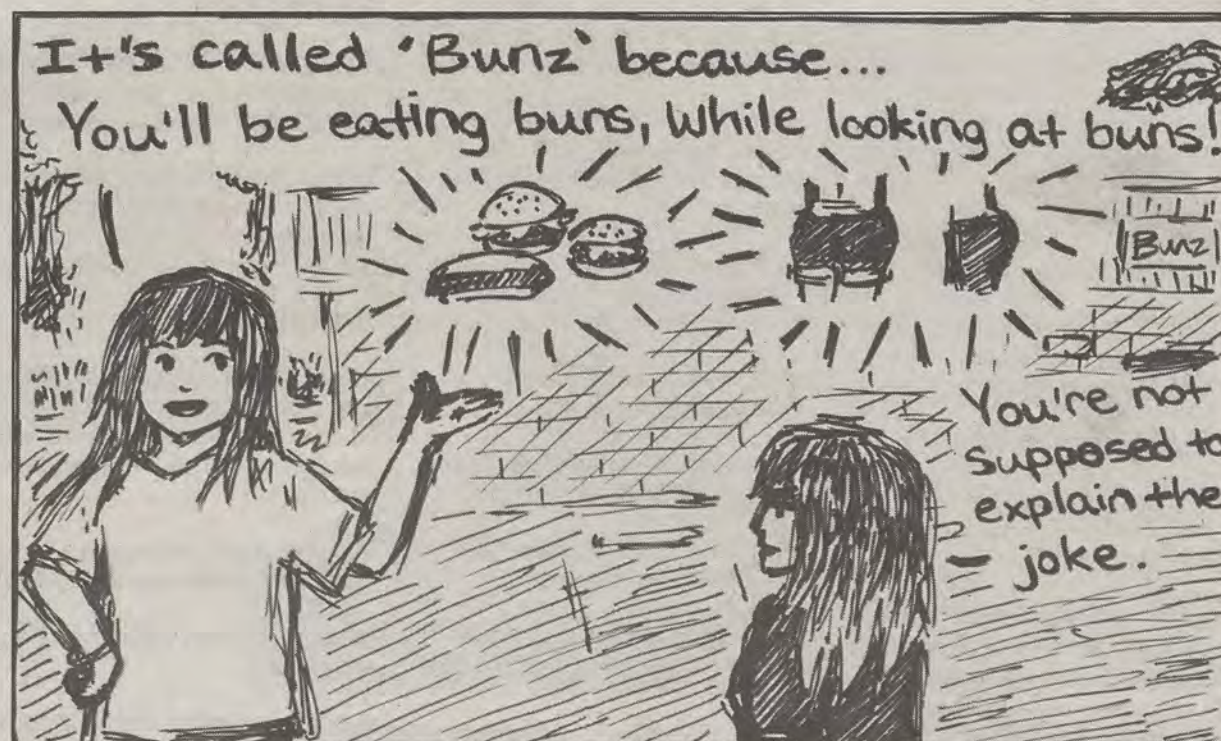 It's called 'Bunz' because...
You'll be eating buns, while looking at buns!
Bunz
You're not
supposed to
explain the
joke.